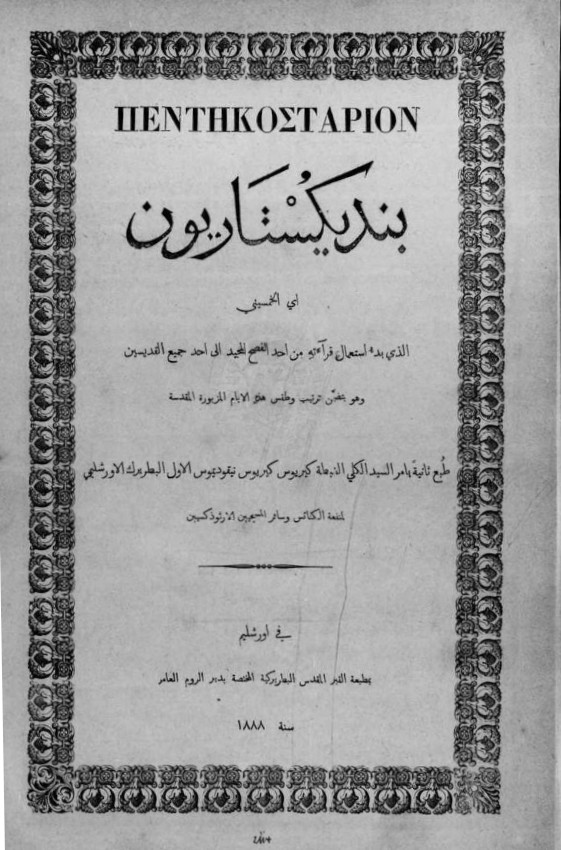 ΠΕΝΤΗΚΟΣΤΑΡΙΟΝ
بنديكُسْتَاريون
اي الخمسيني
الذي بدء استعمال قرآءته من احد الفصح المجيد الى احد جميع القديسين
وهو يتضمّن ترتيب وطقس هذه الايام المزبورة المقدسة
طُبع ثانيةً بامر السيد الكلي الغبطة كيريوس كيريوس نيقوديموس الاول البطريرك الاورشليمي
لمنفعة الكنائس وسائر المسيحيين الارثوذكسيين
في اورشليم
بمطبعة القبر المقدس البطريركية المختصة بدير الروم العامر
سنة ١٨٨٨